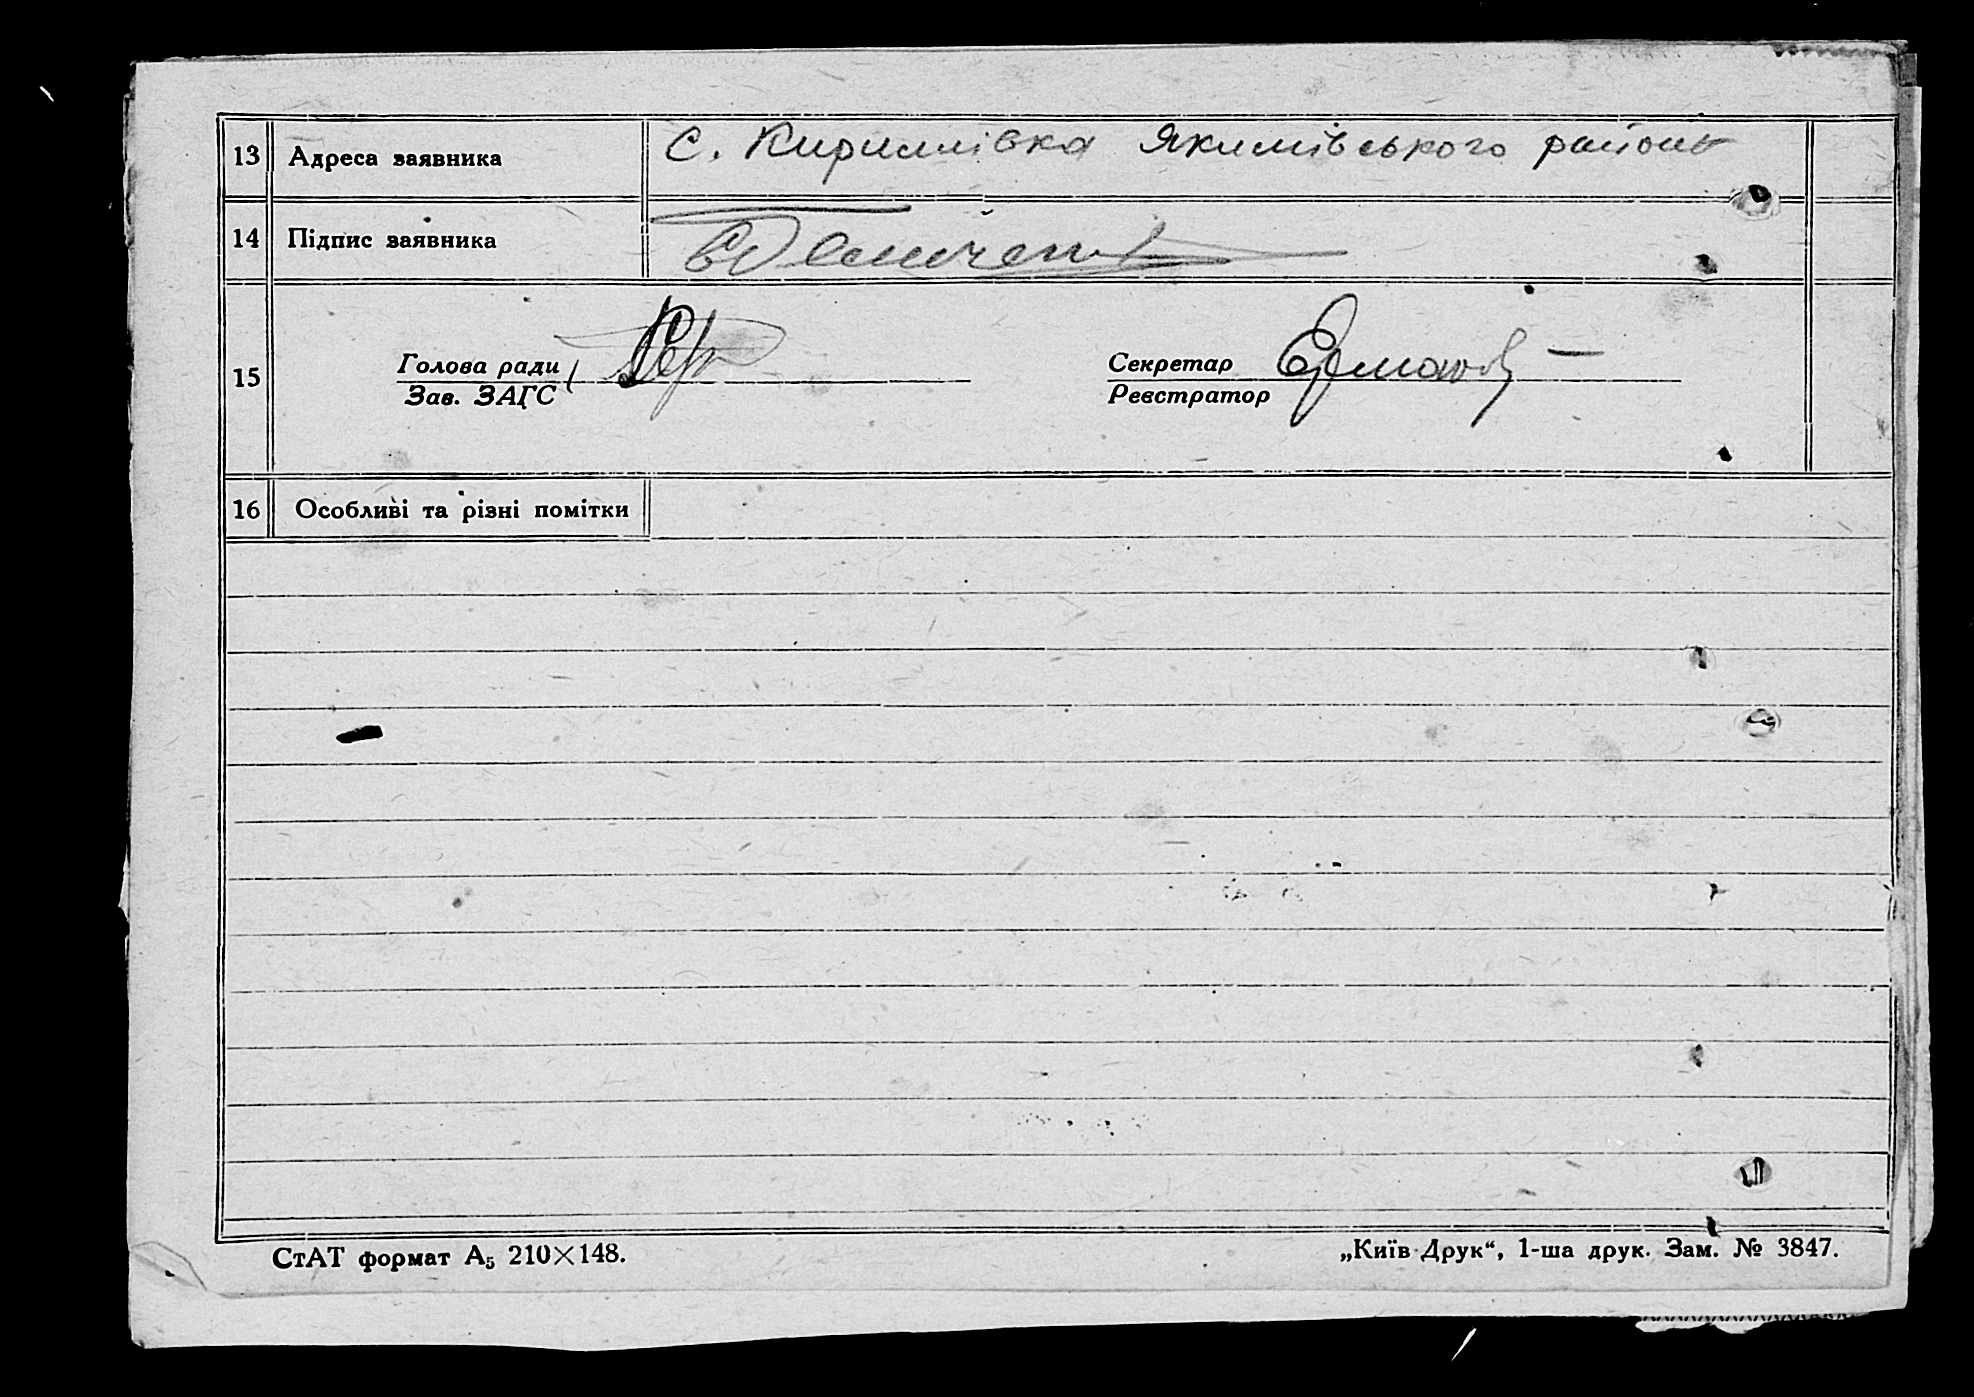 13 Адреса заявника с. Кириллівка Якимівського району
14 Підпис заявника
15 Голова ради Секретар
Зав. ЗАГС Реєстратор
16 Особливі та різні помітки
СтАТ формат А5 210×148. „Київ-Друк“, 1-ша друк. Зам. № 3847.